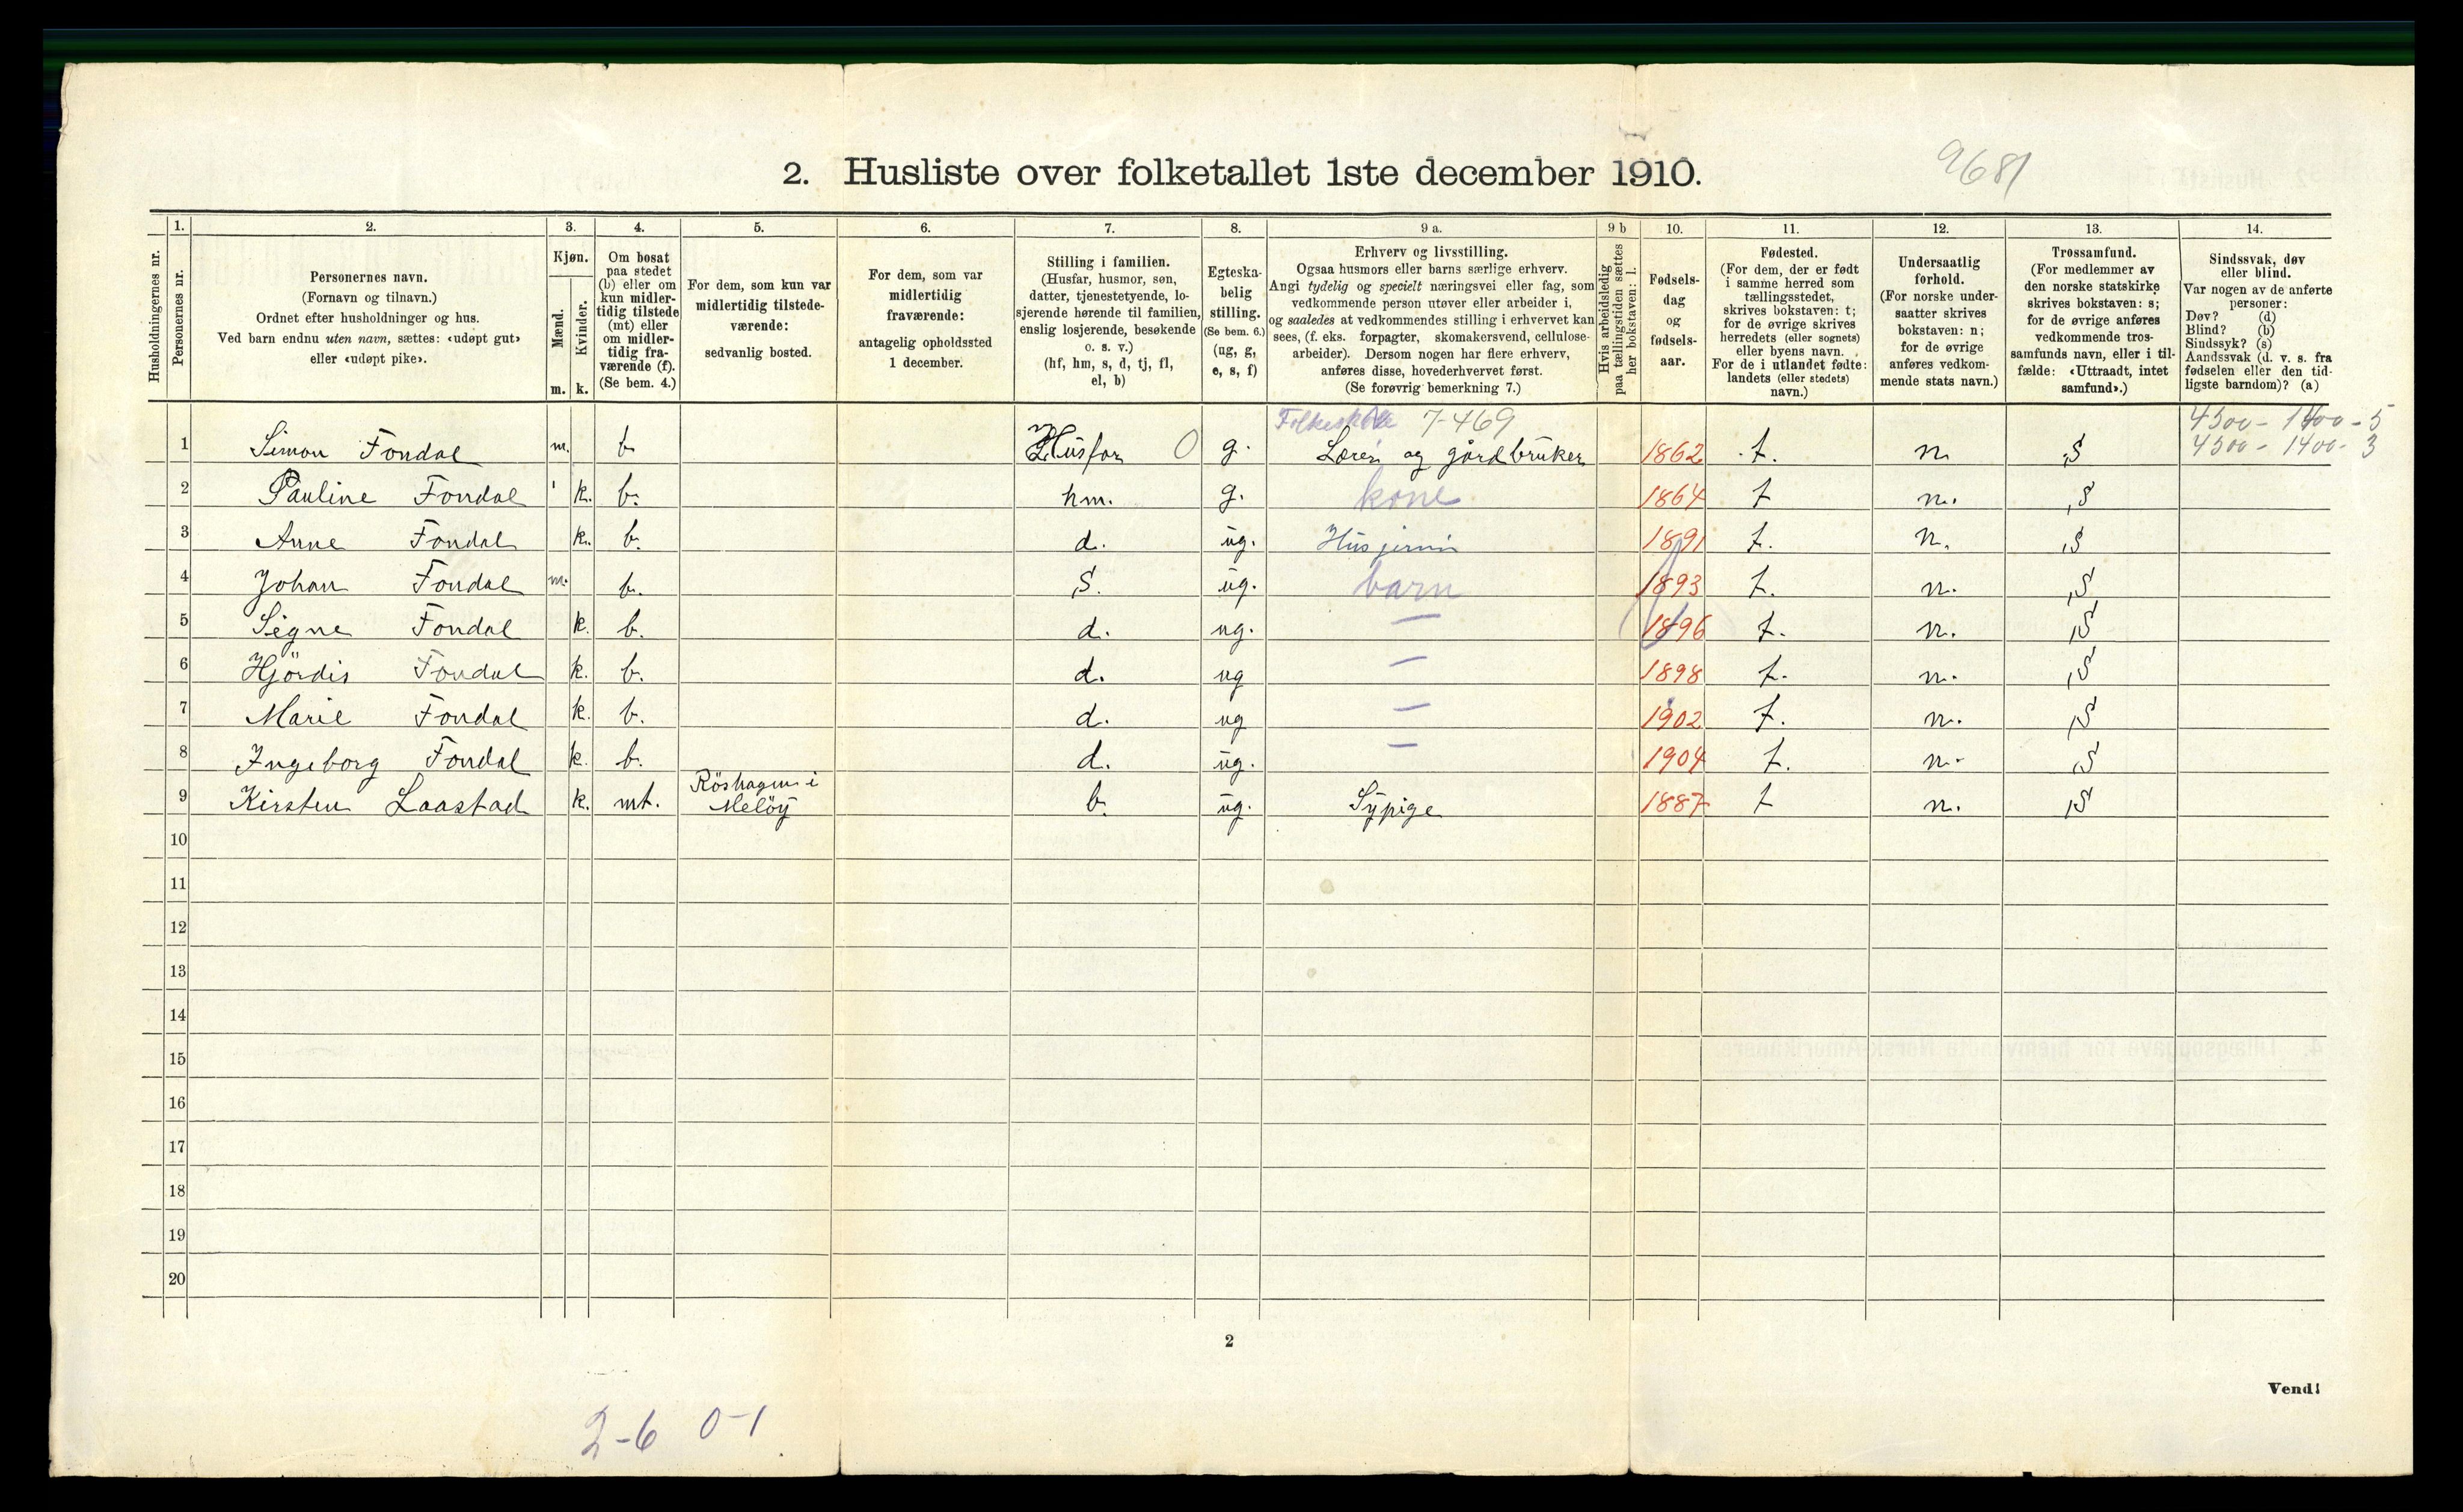 2. Husliste over folketallet 1ste december 1910.
9681
Husholdningernes nr.
1.
Personernes nr.
2.
Personernes navn.
(Fornavn og tilnavn.)
Ordnet efter husholdninger og hus.
Ved barn endnu uten navn, sættes: «udøpt gut»
eller «udøpt pike».
3.
Kjøn.
Mænd.
Kvinder.
m. k.
4.
Om bosat
paa stedet
(b) eller om
kun midler-
tidig tilstede
(mt) eller
om midler-
tidig fra-
værende (f).
(Se bem. 4.)
5.
For dem, som kun var
midlertidig tilstede-
værende:
sedvanlig bosted.
6.
For dem, som var
midlertidig
fraværende:
antagelig opholdssted
1 december.
7.
Stilling i familien.
(Husfar, husmor, søn,
datter, tjenestetyende, lo-
sjerende hørende til familien,
enslig losjerende, besøkende
o. s. v.)
(hf, hm, s, d, tj, fl,
el, b)
8.
Egteska-
belig
stilling.
(Se bem. 6.)
(ug, g,
e, s, f)
9 a.
Erhverv og livsstilling.
Ogsaa husmors eller barns særlige erhverv.
Angi tydelig og specielt næringsvei eller fag, som
vedkommende person utøver eller arbeider i,
og saaledes at vedkommendes stilling i erhvervet kan
sees, (f. eks. forpagter, skomakersvend, cellulose-
arbeider). Dersom nogen har flere erhverv,
anføres disse, hovederhvervet først.
(Se forøvrig bemerkning 7.)
9 b
Hvis arbeidsledig
paa tællingstiden sættes
her bokstaven: l.
10.
Fødsels-
dag
og
fødsels-
aar.
11.
Fødested.
(For dem, der er født
i samme herred som
tællingsstedet,
skrives bokstaven: t;
for de øvrige skrives
herredets (eller sognets)
eller byens navn.
For de i utlandet fødte:
landets (eller stedets)
navn.)
12.
Undersaatlig
forhold.
(For norske under-
saatter skrives
bokstaven: n;
for de øvrige
anføres vedkom-
mende stats navn.)
13.
Trossamfund.
(For medlemmer av
den norske statskirke
skrives bokstaven: s;
for de øvrige anføres
vedkommende tros-
samfunds navn, eller i til-
fælde: «Uttraadt, intet
samfund».)
14.
Sindssvak, døv
eller blind.
Var nogen av de anførte
personer:
Døv? (d)
Blind? (b)
Sindssyk? (s)
Aandssvak (d. v. s. fra
fødselen eller den tid-
ligste barndom)? (a)
Folkeskole 7-469 4300 - 1400 - 5
1 Simon Fondal m. b. Husfar 0 g. Lærer og gårdbruker 1862 t. n S 4300 - 1400 - 3
2 Pauline Fondal k. b. hm. g. kone 1864 t n. S
3 Anne Fondal k. b. d. ug. Husgjerning 1891 t. n. S
4 Johan Fondal m. b. S. ug. barn 1893 t. n. S
5 Signe Fondal k. b. d. ug. — 1896 t. n. S
6 Hjördis Fondal k. b. d. ug — 1898 t. n. S
7 Marie Fondal k. b. d. ug — 1902 t. n. S
8 Ingeborg Fondal k. b. d. ug. — 1904 t. n. S
9 Kirsten Laastad k. mt. Röshagen i Melöy b. ug. Sypige 1887 t n. S
10
11
12
13
14
15
16
17
18
19
20
2
Vend!
2-6 0-1